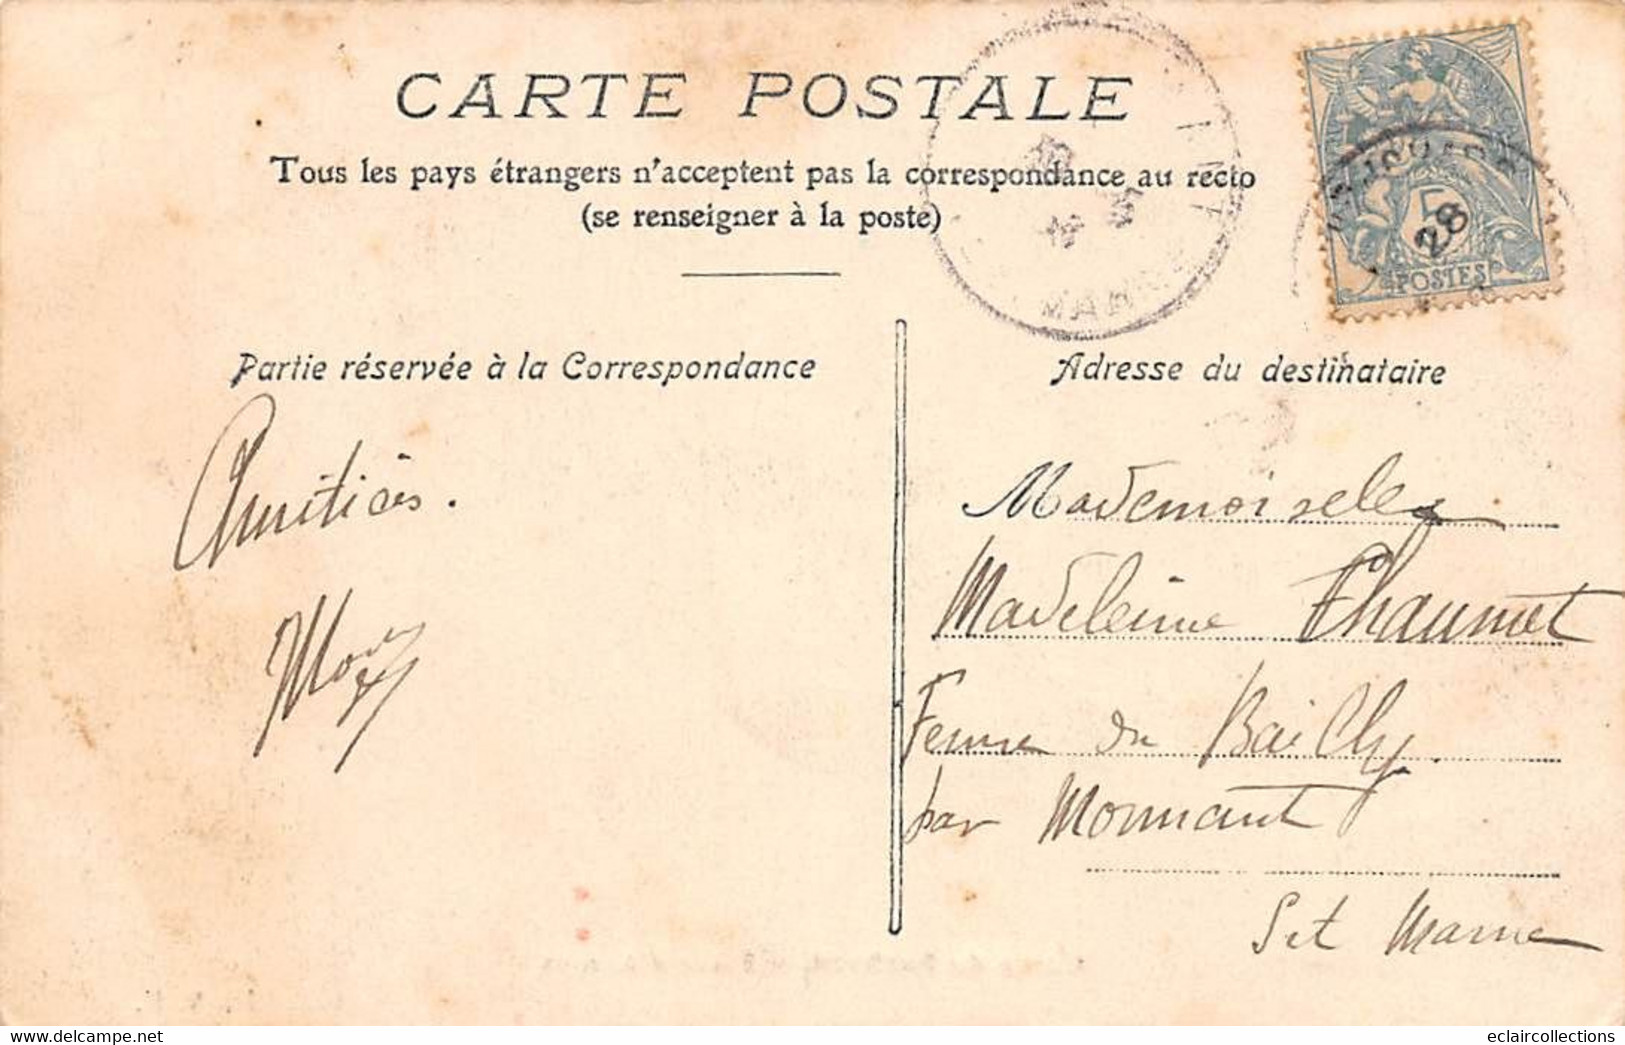 CARTE POSTALE
Tous les pays étrangers n'acceptent pas la correspondance au recto
(se renseigner à la poste)
5
28
POSTES
MARNE
Partie réservée à la Correspondance
Adresse du destinataire
Amitiés.
Mademoiselle
Madeleine Chaumet
Ferme du Bailly
par Mormant
Set Marne
www.delcampe.net
eclaircollections